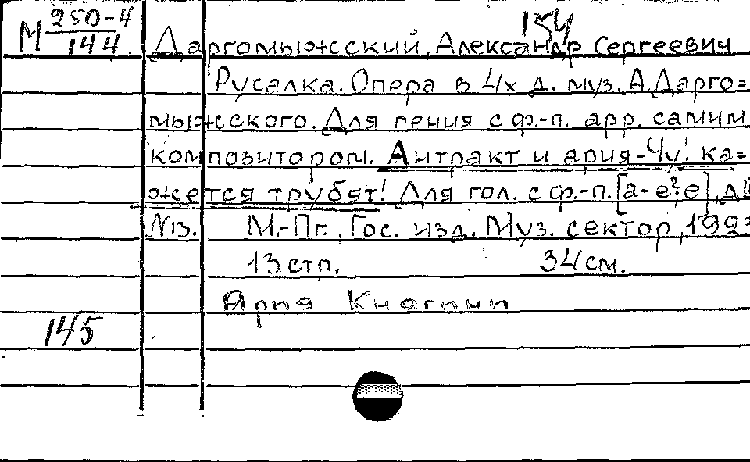 154
М 250-4
144
Даргомыжсский, Александр Сергеевич
Русалка. Опера в 4х д. муз. А. Дарго=
мыжского. Для пения с ф.-п. арр. самим
композитором. Антракт и ария-Чу! ка=
жется трубят! Для гол. с ф.-п. [а-е²; е], д
№13. М.-Пг., Гос. изд. Муз. сектор, 192
13 стр. 34 см.
Ария Княгини
145